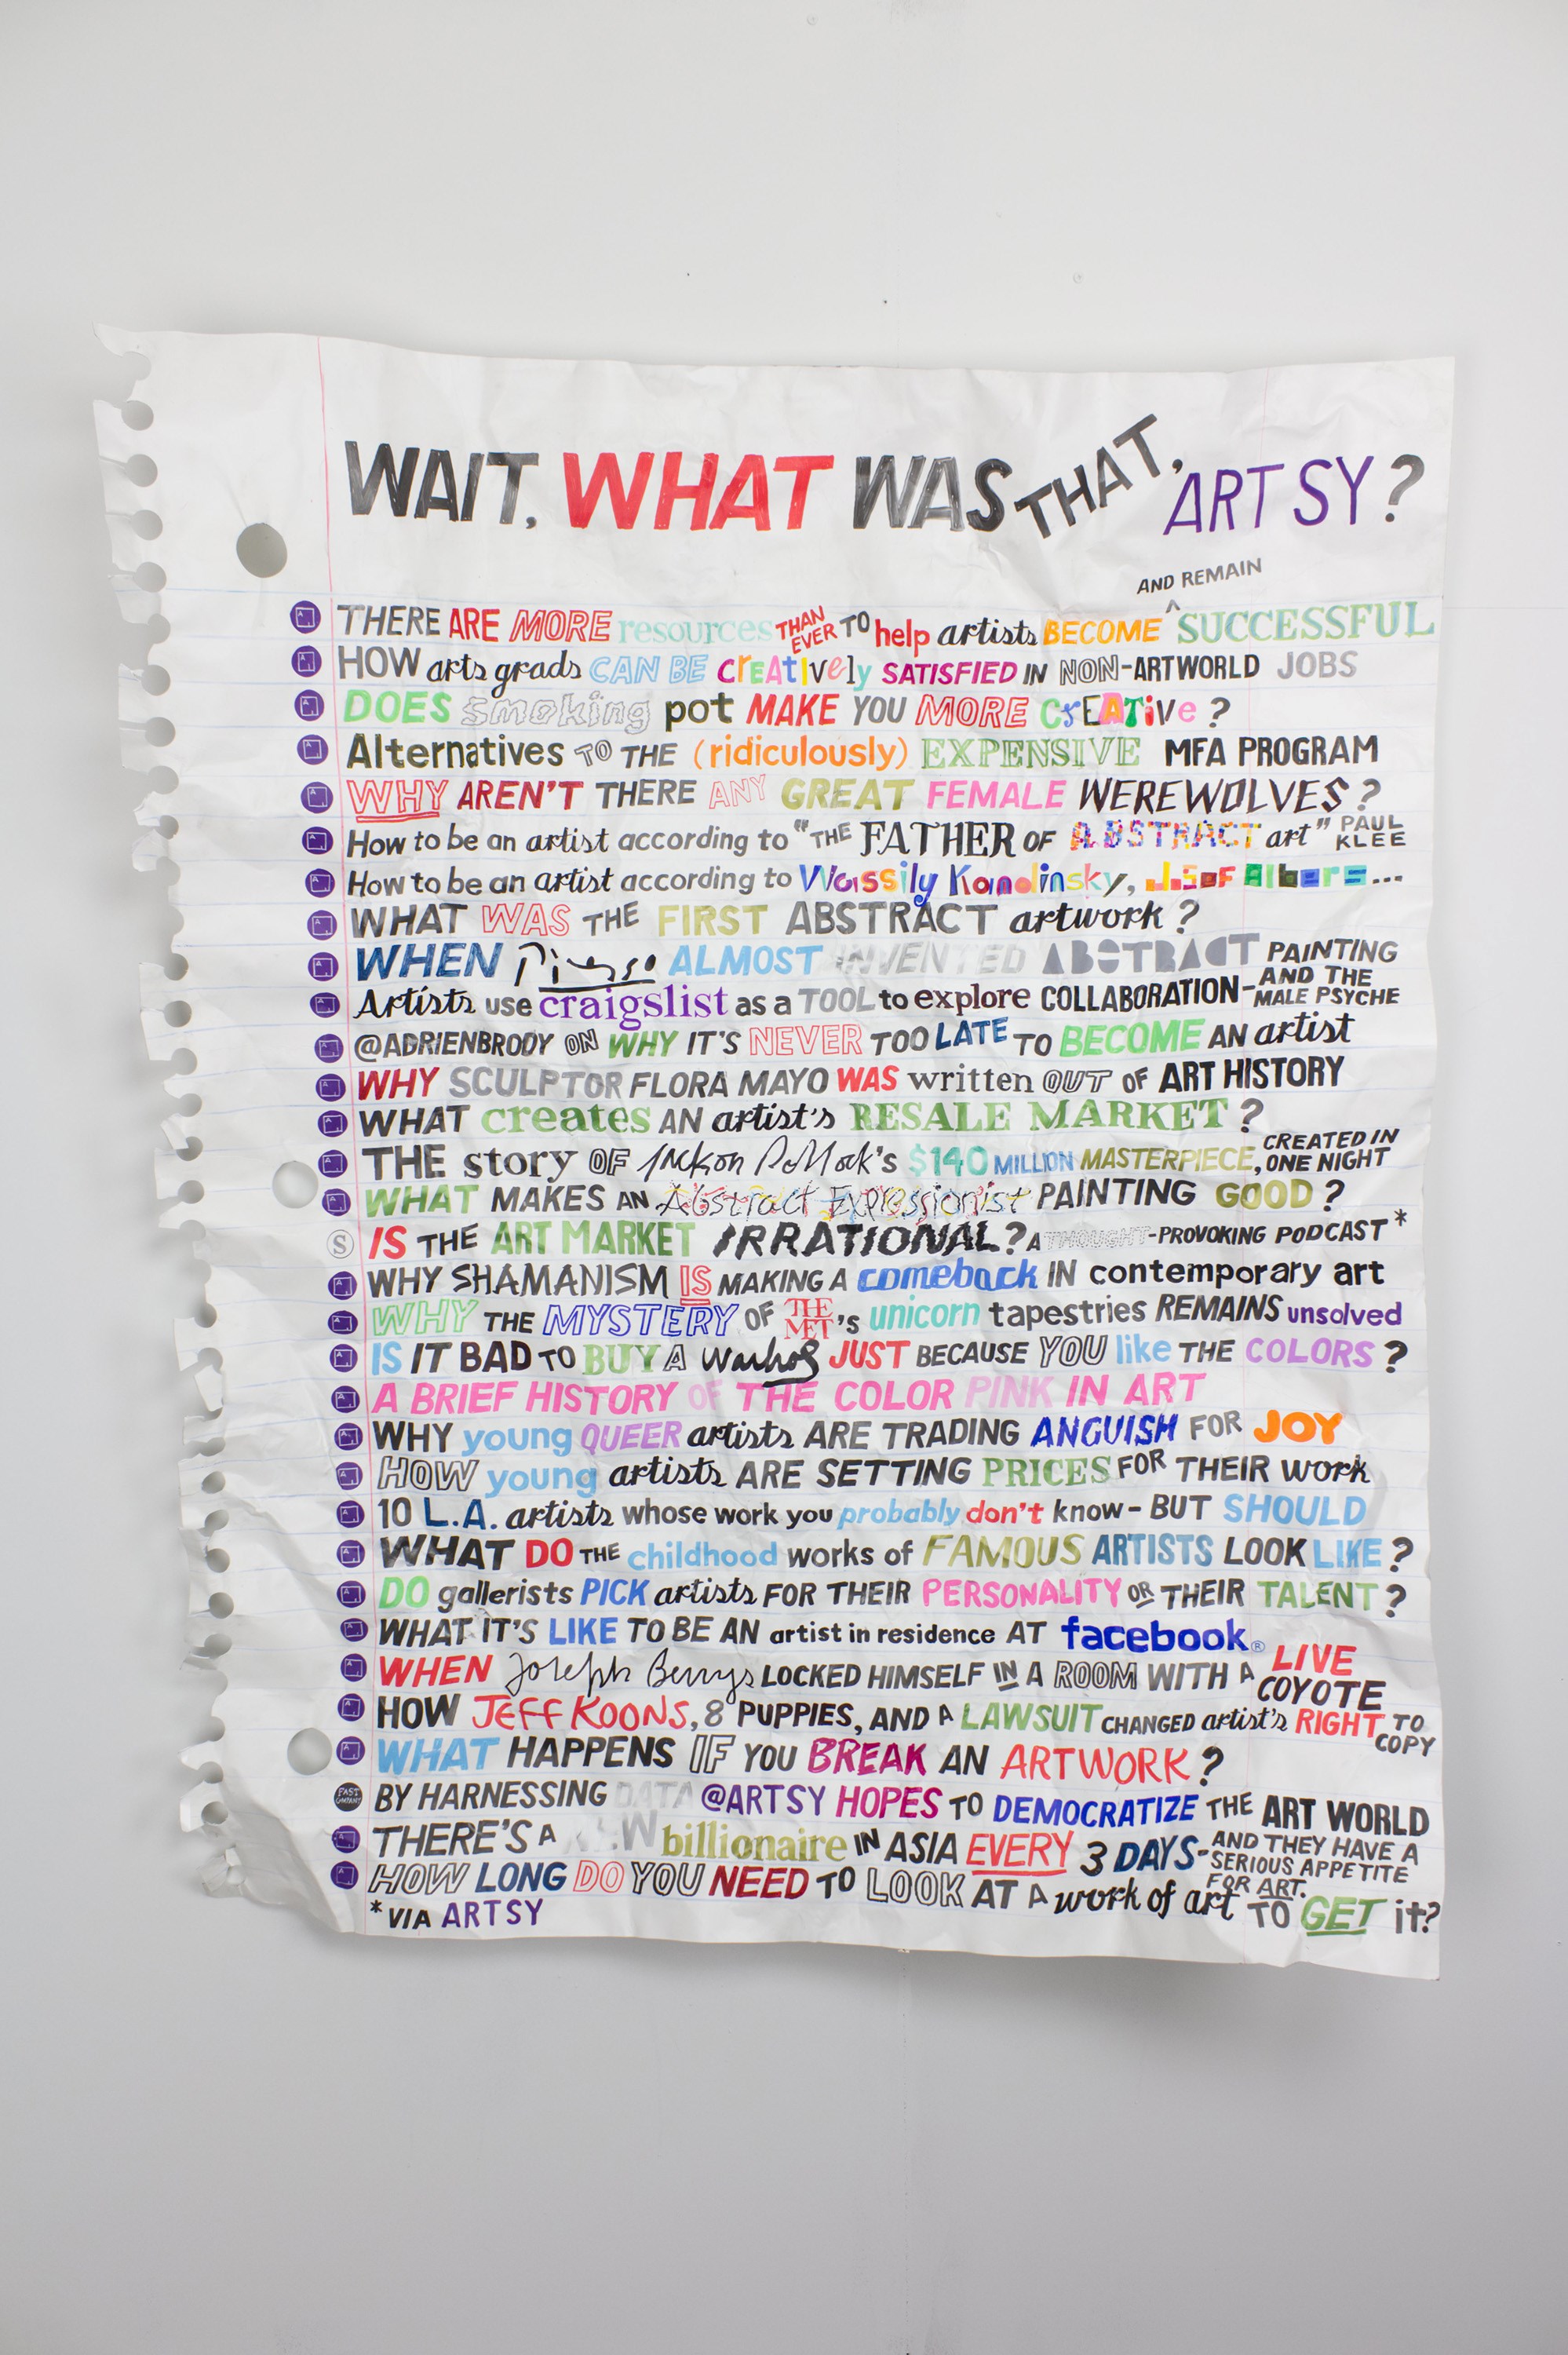 WAIT, WHAT WAS THAT, ARTSY?
AND REMAIN
THERE ARE MORE resources THAN EVER TO help artists BECOME ^ SUCCESSFUL
HOW arts grads CAN BE CreAtIvely SATISFIED IN NON-ARTWORLD JOBS
DOES smoking pot MAKE YOU MORE CrEATive?
Alternatives TO THE (ridiculously) EXPENSIVE MFA PROGRAM
WHY AREN'T THERE ANY GREAT FEMALE WEREWOLVES?
How to be an artist according to "THE FATHER OF ABSTRACT art" PAUL KLEE
How to be an artist according to Wassily Kandinsky, JoSEF Albers...
WHAT WAS THE FIRST ABSTRACT artwork?
WHEN Picasso ALMOST INVENTED ABSTRACT PAINTING
Artists use craigslist as a TOOL to explore COLLABORATION-AND THE MALE PSYCHE
@ADRIENBRODY ON WHY IT'S NEVER TOO LATE TO BECOME AN artist
WHY SCULPTOR FLORA MAYO WAS written OUT OF ART HISTORY
WHAT creates AN artist's RESALE MARKET?
THE story OF Jackson Pollock's $140 MILLION MASTERPIECE, CREATED IN ONE NIGHT
WHAT MAKES AN Abstract Expressionist PAINTING GOOD?
S IS THE ART MARKET IRRATIONAL? A THOUGHT-PROVOKING PODCAST*
WHY SHAMANISM IS MAKING A comeback IN contemporary art
WHY THE MYSTERY OF THE MET's unicorn tapestries REMAINS unsolved
IS IT BAD TO BUY A Warhol JUST BECAUSE YOU like THE COLORS?
A BRIEF HISTORY OF THE COLOR PINK IN ART
WHY young QUEER artists ARE TRADING ANGUISH FOR JOY
HOW young artists ARE SETTING PRICES FOR THEIR work
10 L.A. artists whose work you probably don't know-BUT SHOULD
WHAT DO THE childhood works of FAMOUS ARTISTS LOOK LIKE?
DO gallerists PICK artists FOR THEIR PERSONALITY OR THEIR TALENT?
WHAT IT'S LIKE TO BE AN artist in residence AT facebook®
WHEN Joseph Beuys LOCKED HIMSELF IN A ROOM WITH A LIVE COYOTE
HOW JEFF KOONS, 8 PUPPIES, AND A LAWSUIT CHANGED artist's RIGHT TO COPY
WHAT HAPPENS IF YOU BREAK AN ARTWORK?
FAST COMPANY BY HARNESSING DATA @ARTSY HOPES TO DEMOCRATIZE THE ART WORLD
THERE'S A NEW billionaire IN ASIA EVERY 3 DAYS-AND THEY HAVE A SERIOUS APPETITE FOR ART.
HOW LONG DO YOU NEED TO LOOK AT A work of art TO GET it?
*VIA ARTSY